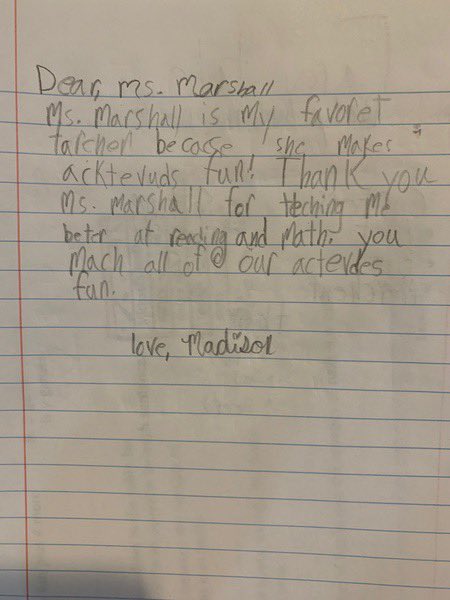 Dear, ms. Marshall
Ms. Marshall is My favoret
tarcher becacse she makes
acktevuds fun! Thank you
Ms. Marshall for teching me
beter at reading and Math. you
Mach all of our actevdes
fun.
love, Madison